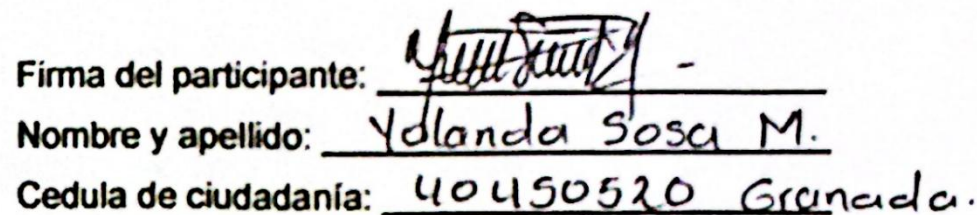 Firma del participante:
Nombre y apellido: Yolanda Sosa M.
Cedula de ciudadanía: 40450520 Granada.